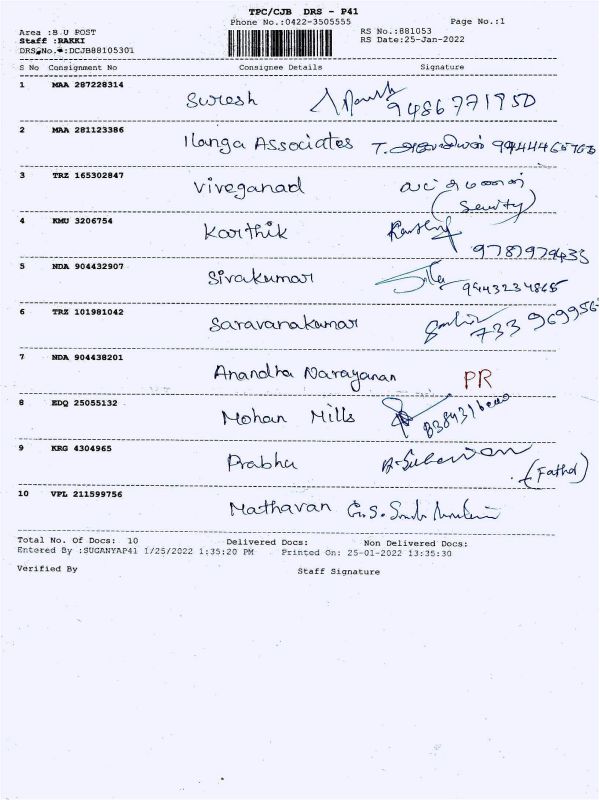 TPC/CJB DRS - P41
Phone No.:0422-3505555
Page No.:1
Area :B.U POST
RS No.:881053
Staff :RAKKI
RS Date:25-Jan-2022
DRS No. :DCJB88105301
S No Consignment No Consignee Details Signature
1 MAA 287228314
Suresh 9486771950
2 MAA 281123386
Ilanga Associates
3 TRZ 165302847
Viveganad
4 KMU 3206754
Karthik
9787979435
5 NDA 904432907
Sivakumar 9943234865
6 TRZ 101981042
Saravanakumar
7 NDA 904438201
Anandha Narayanan PR
8 EDQ 25055132
Mohan Mills
9 KRG 4304965
Prabhu
10 VPL 211599756
Mathavan
Total No. Of Docs: 10 Delivered Docs: Non Delivered Docs:
Entered By :SUGANYAP41 1/25/2022 1:35:20 PM Printed On: 25-01-2022 13:35:30
Verified By Staff Signature